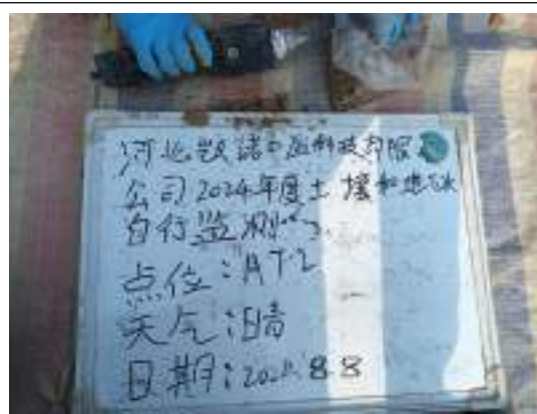 河北凯诺中医科技有限
公司2024年度土壤和地下水
自行监测
点位:AT2
天气:晴
日期:2024.8.8